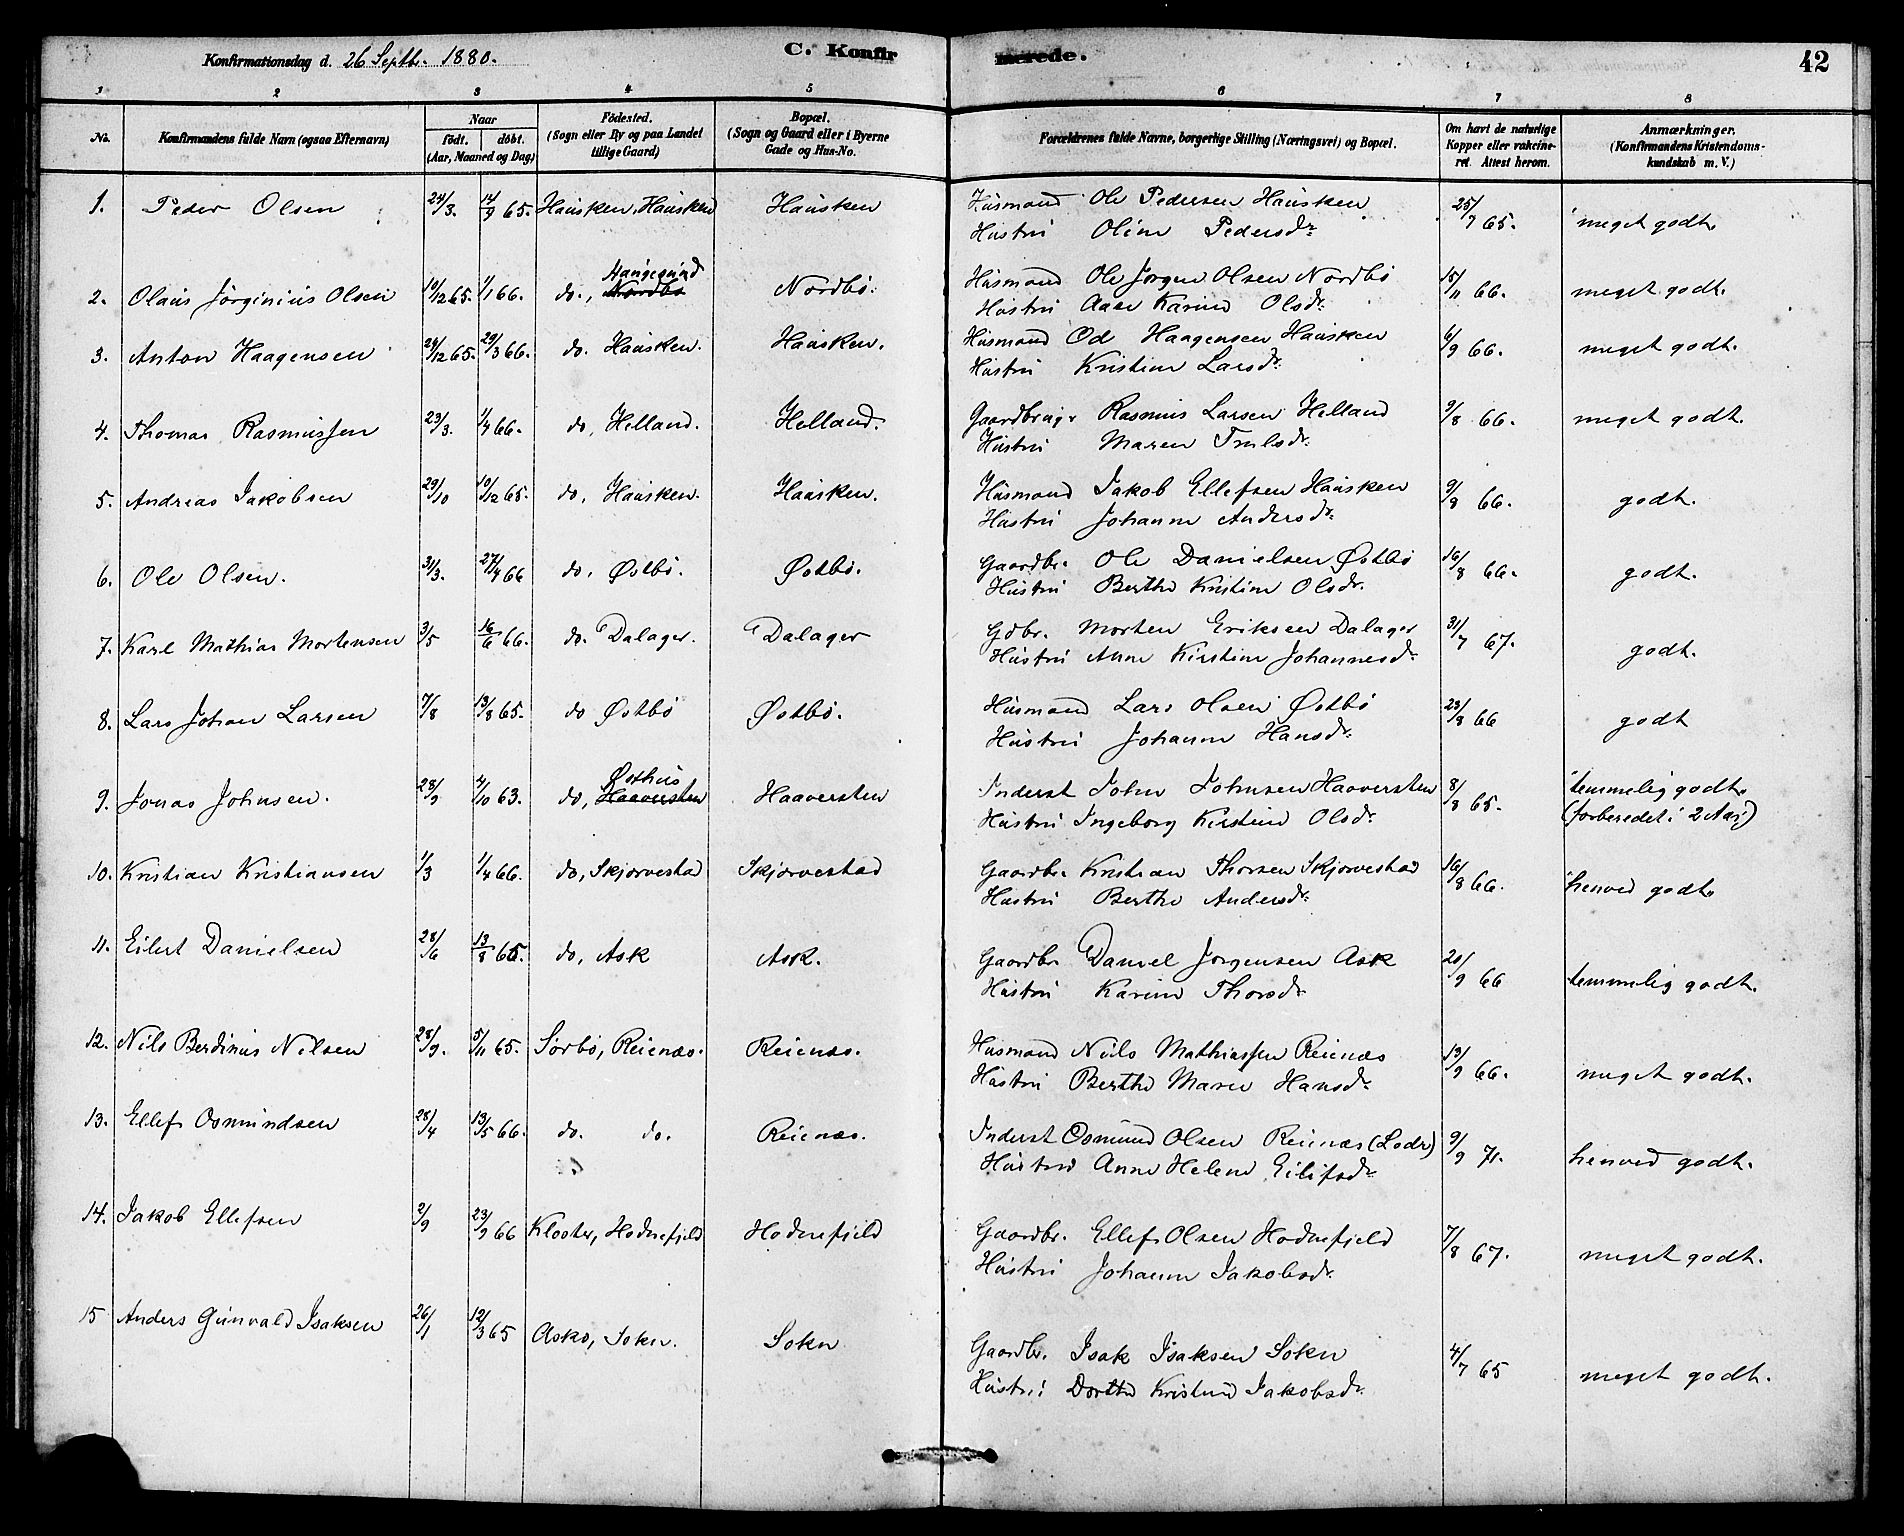 Konfirmationsdag d. 26 Septbr. 1880.
C. Konfirmerede.
42
1 2 3 4 5 6 7 8
No. Konfirmandens fulde Navn (ogsaa Efternavn) Naar født. døbt. (Aar, Maaned og Dag) Fødested. (Sogn eller By og paa Landet tillige Gaard) Bopæl. (Sogn og Gaard eller i Byerne Gade og Hus-No. Forældrenes fulde Navne, borgerlige Stilling (Næringsvei) og Bopæl. Om havt de naturlige Kopper eller vakcineret. Attest herom. Anmærkninger. (Konfirmandens Kristendomskundskab m. V.)
1. Peder Olsen 24/3. 14/9 65. Hausken, Hausken Hausken Husmand Ole Pedersen Hausken 25/7 65. meget godt.
Hustru Oline Pedersdr.
Haugesund
2. Olaus Jørginius Olsen 10/12 65. 1/1 66. do., Nordbø Nordbø. Husmand Ole Jørgen Olsen Nordbø 15/11 66. meget godt.
Hustru Aase Karine Olsdr.
3. Anton Haagensen 24/12 65. 29/3 66. do. Hausken. Hausken. Husmand Od Haagensen Hausken 6/9 66. meget godt.
Hustru Kristine Larsdr.
4. Thomas Rasmussen 23/3. 1/4 66. do, Helland. Helland. Gaardbruger Rasmus Larsen Helland 9/8 66. meget godt.
Hustru Maren Trulsdr.
5. Andreas Jakobsen 29/10 10/12 65. do, Hausken. Hausken. Husmand Jakob Ellefsen Hausken 9/8 66. godt.
Hustru Johanne Andersdr.
6. Ole Olsen. 31/3. 27/4 66 do, Østbø. Østbø. Gaardbr. Ole Danielsen Østbø 16/8 66. godt.
Hustru Berthe Kristine Olsdr.
7. Karl Mathias Mortensen 3/5 16/6 66. do. Dalager. Dalager Gdbr. Morten Eriksen Dalager 31/7 67. godt.
Hustru Anne Kirstine Johannesdr.
8. Lars Johan Larsen 7/8 13/8 65. do Østbø Østbø. Husmand Lars Olsen Østbø 23/8 66 godt
Hustru Johanne Hansdr.
Østhus
9. Jonas Johnsen. 28/9 4/10 63. do, Haaversten Haaversten Inderst John Johnsen Haaversten 8/8 65. temmelig godt.
Hustru Ingeborg Kirstine Olsdr. (forberedet i 2 Aar)
10. Kristian Kristiansen 1/3 1/4 66. do, Skjørvestad Skjørvestad Gaardbr. Kristian Thorsen Skjørvestad 16/8 66. henved godt.
Hustru Berthe Andersdr.
11. Eilert Danielsen 28/6 13/8 65. do, Ask Ask. Gaardbr. Daniel Jørgensen Ask 20/9 66 temmelig godt.
Hustru Karine Thorsdr.
12. Nils Berdinus Nilsen 28/9. 5/11 65. Sørbø, Reienæs. Reienæs. Husmand Nils Mathiassen Reienæs 13/9 66. meget godt.
Hustru Berthe Marie Hansdr.
13. Ellef Osmundsen 28/4 13/5 66. do. do. Reienæs. Inderst Osmund Olsen Reienæs (Lodr) 9/9 71. henved godt.
Hustru Anne Helene Eilifsdr.
14. Jakob Ellefsen 2/9 23/9 66 Kloster, Hodnefjeld Hodnefjeld Gaardbr. Ellef Olsen Hodnefjeld 7/8 67. meget godt.
Hustru Johanne Jakobsdr.
15 Anders Gunvald Isaksen 26/1 12/3 65 Askø, Sokn. Sokn Gaardbr. Isak Isaksen Sokn 4/7 65 meget godt.
Hustru Dorthe Kristine Jakobsdr.